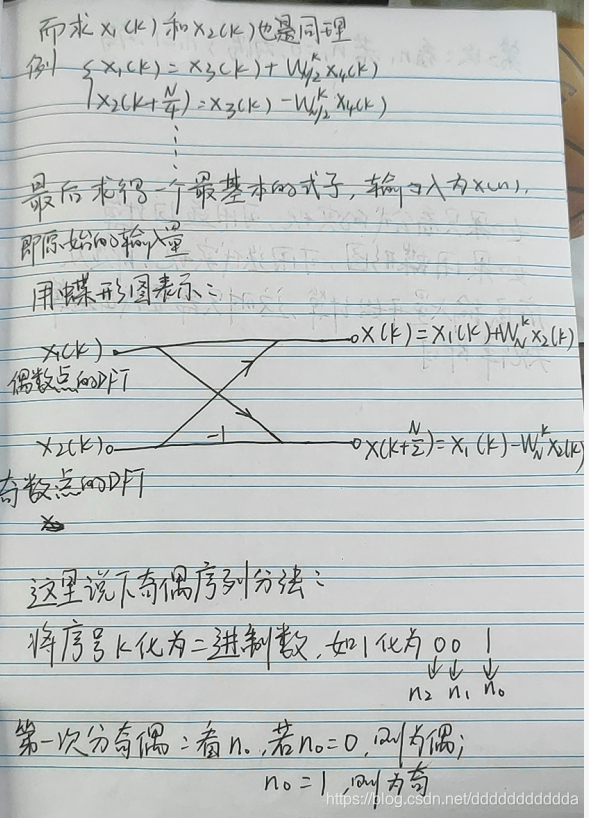 而求 x₁(k) 和 x₂(k) 也是同理
例 { x₁(k) = x₃(k) + W^k_{N/2} x₄(k)
x₂(k+N/4) = x₃(k) - W^k_{N/2} x₄(k)
最后求得一个最基本的式子, 输入为x(n),
即原始的输入量
用蝶形图表示:
x₁(k) X(k) = X₁(k)+W_N^k x₂(k)
偶数点的DFT
x₂(k) -1 X(k+N/2) = x₁(k) - W_N^k x₂(k)
奇数点的DFT
这里说下奇偶序列分法:
将序号k化为二进制数, 如1化为 0 0 1
n₂ n₁ n₀
第一次分奇偶: 看n₀, 若n₀=0, 则为偶;
n₀=1, 则为奇
https://blog.csdn.net/dddddddddddda